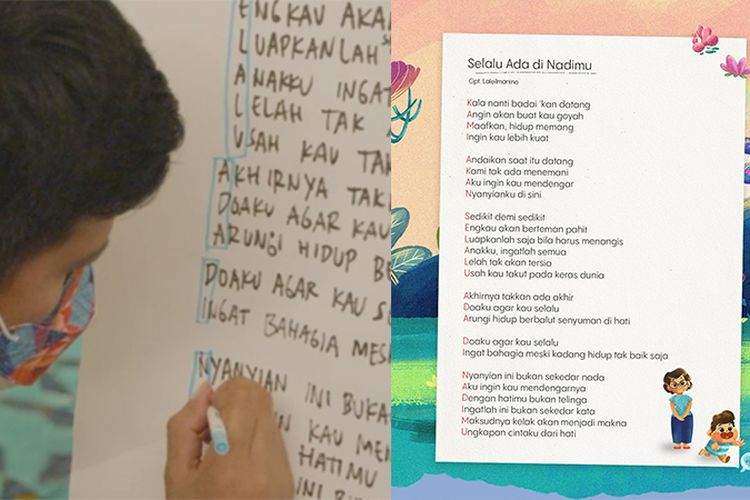 ENGKAU AKAN
LUAPKANLAH
ANAKKU INGAT
LELAH TAK
USAH KAU TAK
AKHIRNYA TAK
DOAKU AGAR KAU
ARUNGI HIDUP BE
DOAKU AGAR KAU S
INGAT BAHAGIA MESK
NYANYIAN INI BUKA
KAU MEN
HATIMU
INI BU
Selalu Ada di Nadimu
Cipt. Laleilmanino
Kala nanti badai 'kan datang
Angin akan buat kau goyah
Maafkan, hidup memang
Ingin kau lebih kuat
Andaikan saat itu datang
Kami tak ada menemani
Aku ingin kau mendengar
Nyanyianku di sini
Sedikit demi sedikit
Engkau akan berteman pahit
Luapkanlah saja bila harus menangis
Anakku, ingatlah semua
Lelah tak akan tersia
Usah kau takut pada keras dunia
Akhirnya takkan ada akhir
Doaku agar kau selalu
Arungi hidup berbalut senyuman di hati
Doaku agar kau selalu
Ingat bahagia meski kadang hidup tak baik saja
Nyanyian ini bukan sekedar nada
Aku ingin kau mendengarnya
Dengan hatimu bukan telinga
Ingatlah ini bukan sekedar kata
Maksudnya kelak akan menjadi makna
Ungkapan cintaku dari hati